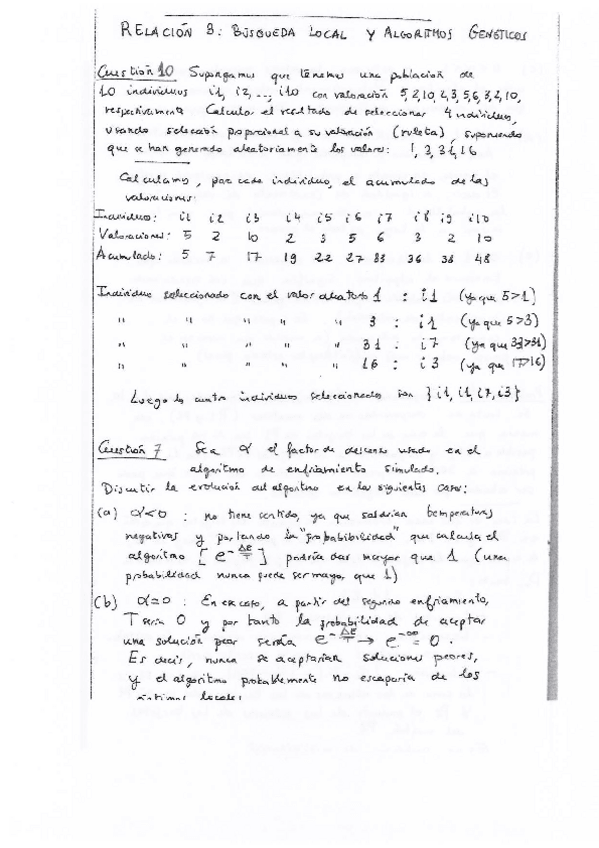 RELACIÓN 3: BÚSQUEDA LOCAL Y ALGORITMOS GENÉTICOS
Cuestión 10 Supongamos que tenemos una población de
10 individuos i1, i2, ..., i10 con valoración 5,2,10,2,3,5,6,3,2,10,
respectivamente Calcular el resultado de seleccionar 4 individuos,
usando selección proporcional a su valoración (ruleta), suponiendo
que se han generado aleatoriamente los valores: 1, 3, 31, 16
Calculamos, por cada individuo, el acumulado de las
valoraciones:
Individuo: i1 i2 i3 i4 i5 i6 i7 i8 i9 i10
Valoraciones: 5 2 10 2 3 5 6 3 2 10
Acumulado: 5 7 17 19 22 27 33 36 38 48
Individuo seleccionado con el valor aleatorio 1 : i1 (ya que 5>1)
" " " " " 3 : i1 (ya que 5>3)
" " " " " 31 : i7 (ya que 33>31)
" " " " " 16 : i3 (ya que 17>16)
Luego los cuatro individuos seleccionados son {i1, i1, i7, i3}
Cuestión 7 Sea α el factor de descenso usado en el
algoritmo de enfriamiento simulado.
Discutir la evolución del algoritmo en los siguientes casos:
(a) α<0 : no tiene sentido, ya que saldrían temperaturas
negativas y por tanto la "probabilidad" que calcula el
algoritmo [e^-ΔE/T] podría dar mayor que 1 (una
probabilidad nunca puede ser mayor que 1)
(b) α=0 : En ese caso, a partir del segundo enfriamiento,
T sería 0 y por tanto la probabilidad de aceptar
una solución peor sería e^-ΔE/T → e^-∞ = 0.
Es decir, nunca se aceptarían soluciones peores,
y el algoritmo probablemente no escaparía de los
óptimos locales